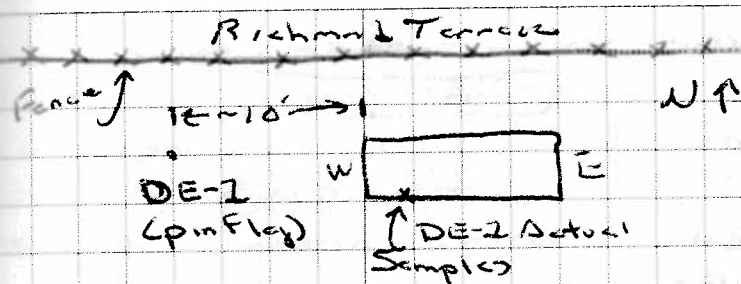 Richmond Terrace
Fence
N
~10'
W
E
DE-1
(pin flag)
DE-1 Actual
Samples